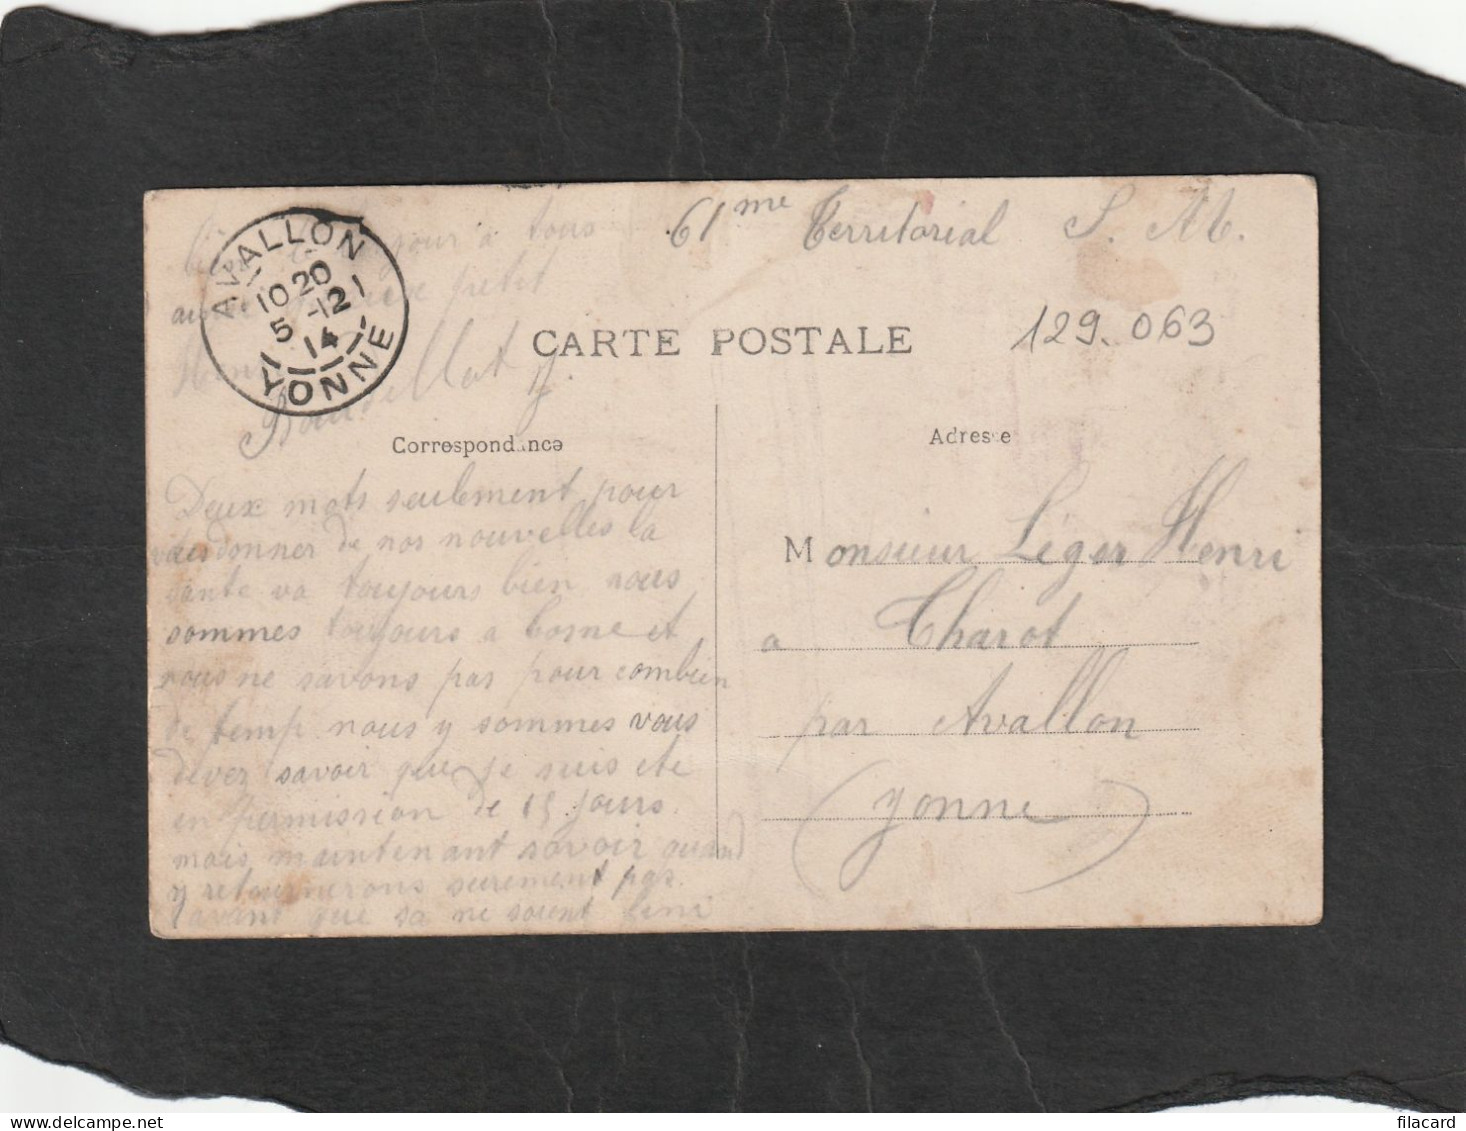 61me Territorial S. M.
bien le jour à tous
petit
AVALLON
10 20
5 -12
14
YONNE
CARTE POSTALE
129.063
Correspondance
Adresse
Deux mots seulement pour
vous donner de nos nouvelles la
sante va toujours bien nous
sommes toujours a Cosne et
nous ne savons pas pour combien
de temp nous y sommes vous
devez savoir que je suis ete
en permission de 15 jours
mais maintenant savoir quand
y retournerons surement pas
avant que sa ne soient fini
Monsieur Léger Henri
a Charot
par Avallon
(Yonne)
filacard